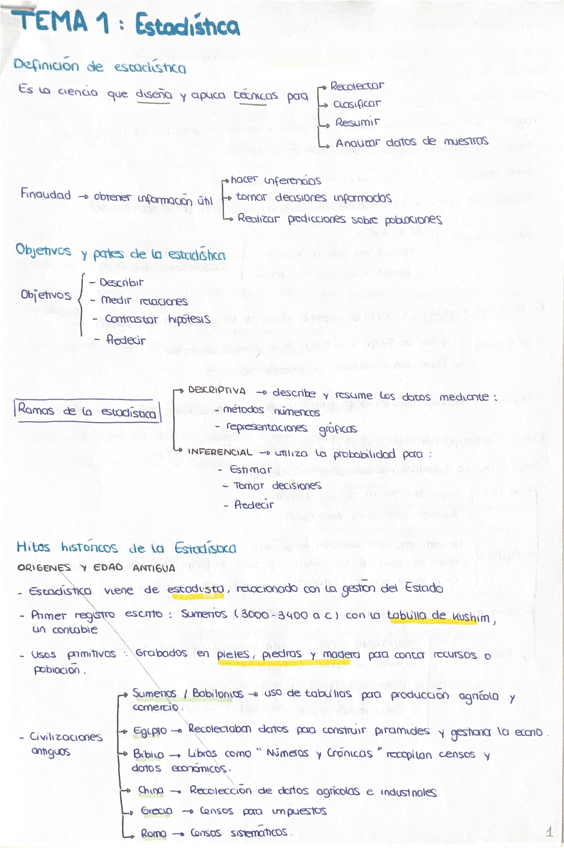 TEMA 1: Estadística
Definición de estadística
Es la ciencia que diseña y aplica técnicas para
Recolectar
Clasificar
Resumir
Analizar datos de muestras
Finalidad → obtener información útil
hacer inferencias
tomar decisiones informadas
Realizar predicciones sobre poblaciones
Objetivos y partes de la estadística
Objetivos
- Describir
- Medir relaciones
- Contrastar hipótesis
- Predecir
Ramas de la estadística
DESCRIPTIVA → describe y resume los datos mediante:
- métodos númericos
- representaciones gráficas
INFERENCIAL → utiliza la probabilidad para:
- Estimar
- Tomar decisiones
- Predecir
Hitos históricos de la Estadística
ORIGENES Y EDAD ANTIGUA
- Estadística viene de estadista, relacionado con la gestión del Estado
- Primer registro escrito: Sumerios (3000-3400 a c) con la tablilla de Kushim,
un contable
- Usos primitivos: Grabados en pieles, piedras y madera para contar recursos o
población.
- Civilizaciones
antiguas
Sumerios / Babilonios → uso de tablillas para producción agrícola y
comercio.
Egipto → Recolectaban datos para construir piramides y gestionar la econo.
Biblia → Libros como "Números y Crónicas" recopilan censos y
datos económicos.
China → Recolección de datos agrícolas e industriales
Grecia → Censos para impuestos
Roma → Censos sistemáticos.
1